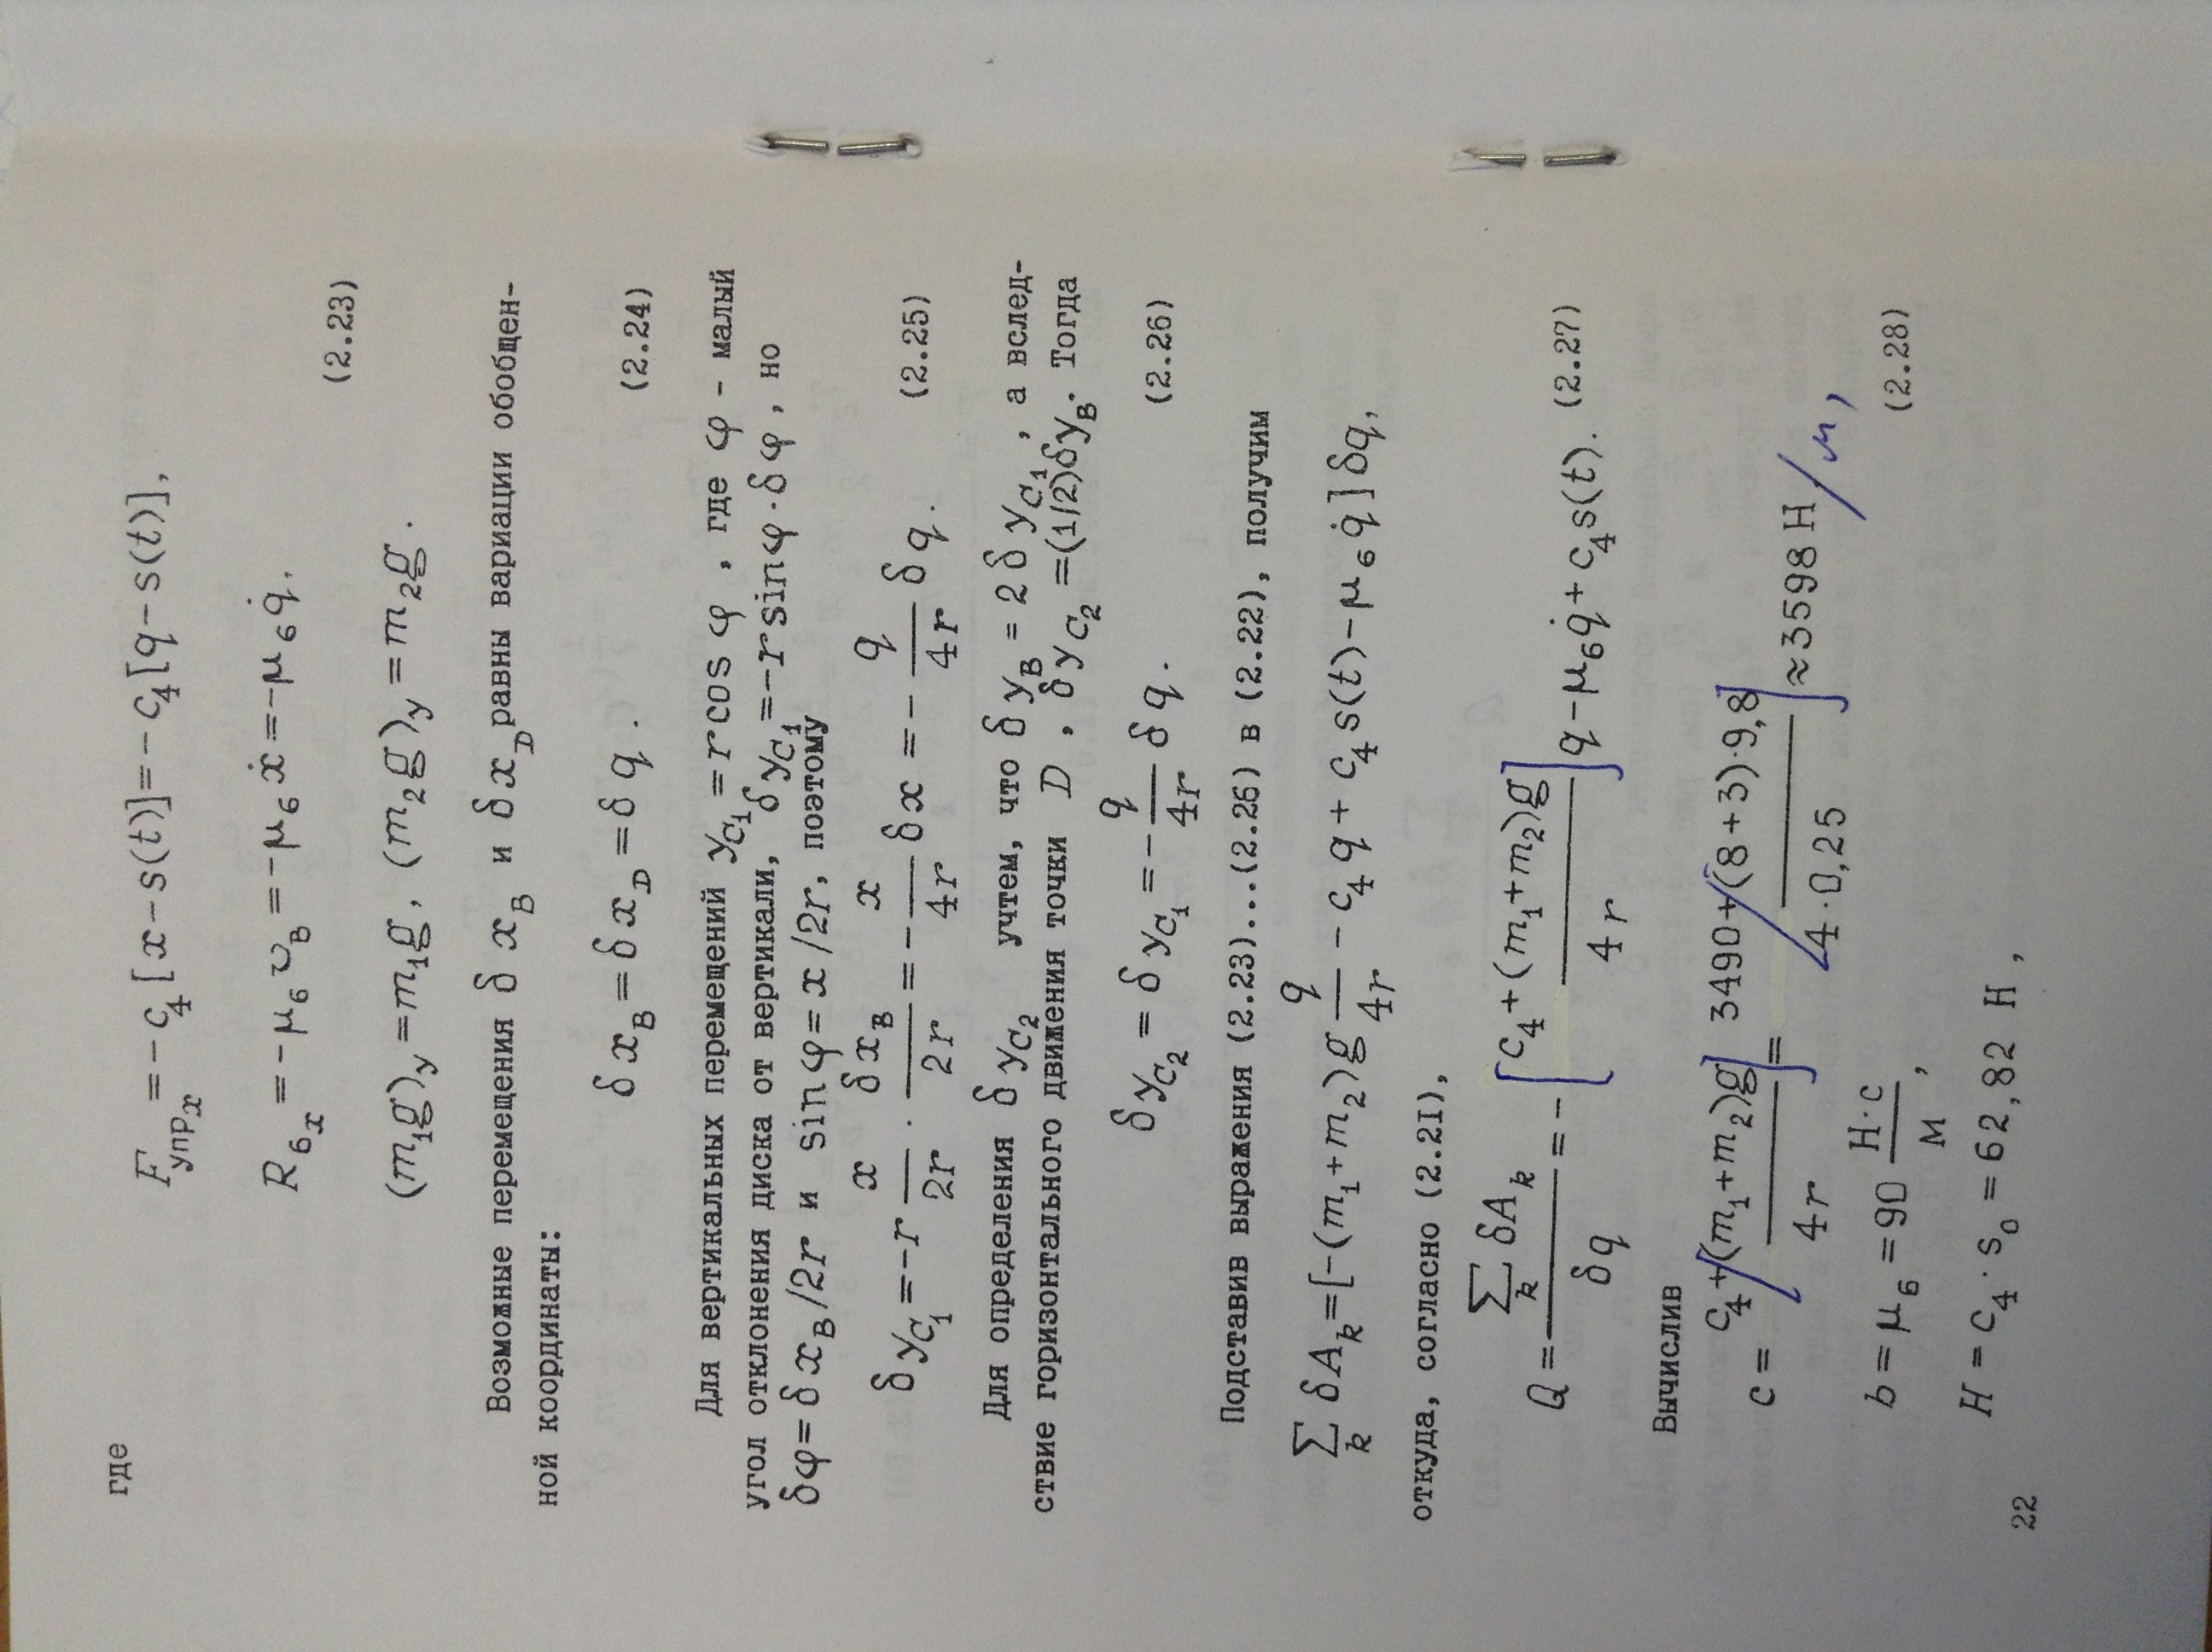 где
F_упр_x = − c₄[x − s(t)] = − c₄[q − s(t)],
R₆_x = − μ₆ υ_B = − μ₆ ẋ = − μ₆ q̇.
(2.23)
(m₁g)_y = m₁g, (m₂g)_y = m₂g.
Возможные перемещения δx_B и δx_D равны вариации обобщен-
ной координаты:
δx_B = δx_D = δq. (2.24)
Для вертикальных перемещений y_C₁ = r cos φ, где φ - малый
угол отклонения диска от вертикали, δy_C₁ = −r sin φ·δφ, но
δφ = δx_B/2r и sin φ = x/2r, поэтому
δy_C₁ = −r x/2r · δx_B/2r = − x/4r δx = − q/4r δq. (2.25)
Для определения δy_C₂ учтем, что δy_B = 2δy_C₁, а вслед-
ствие горизонтального движения точки D, δy_C₂ = (1/2)δy_B. Тогда
δy_C₂ = δy_C₁ = − q/4r δq. (2.26)
Подставив выражения (2.23)...(2.26) в (2.22), получим
∑_k δA_k = [−(m₁+m₂)g q/4r − c₄q + c₄s(t) − μ₆q̇]δq,
откуда, согласно (2.21),
Q = ∑_k δA_k / δq = − [c₄ + (m₁+m₂)g / 4r] q − μ₆q̇ + c₄s(t). (2.27)
Вычислив
c = c₄ + [(m₁+m₂)g] / 4r = 3490 + [(8+3)·9,8] / 4·0,25 ≈ 3598 Н/м,
b = μ₆ = 90 Н·с/м, (2.28)
H = c₄·s₀ = 62,82 Н,
22